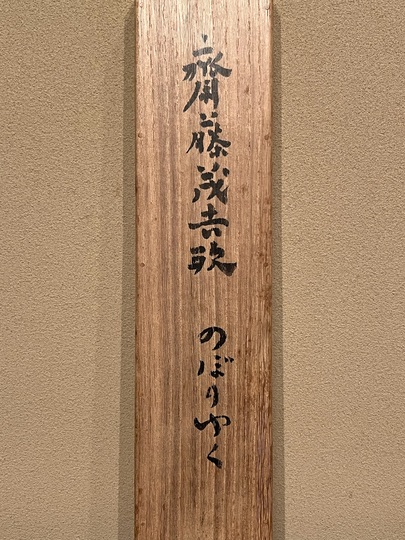 齋藤茂吉歌 のぼりゆく